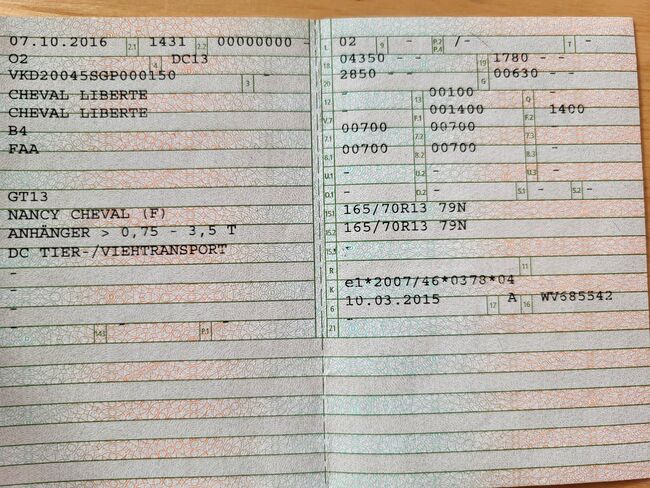 07.10.2016 2.1 1431 2.2 00000000 -
O2 4 DC13
VKD20045SGP000150 3 -
CHEVAL LIBERTE
CHEVAL LIBERTE
B4
FAA
GT13
NANCY CHEVAL (F)
ANHÄNGER > 0,75 - 3,5 T
DC TIER-/VIEHTRANSPORT
-
-
-
- 14.1 - P.1
L 02 9 - P.2 P.4 /- T -
18 04350 - - 19 1780 - -
20 2850 - - G 00630 - -
12 - 13 00100 Q -
V.7 - F.1 001400 F.2 1400
7.1 00700 7.2 00700 7.3 -
8.1 00700 8.2 00700 8.3 -
U.1 - - U.3 -
O.1 - O.2 - S.1 - S.2 -
15.1 165/70R13 79N
15.2 165/70R13 79N
15.3 -
R 11
K e1*2007/46*0378*04
6 10.03.2015 17 A 16 WV685542
21 -